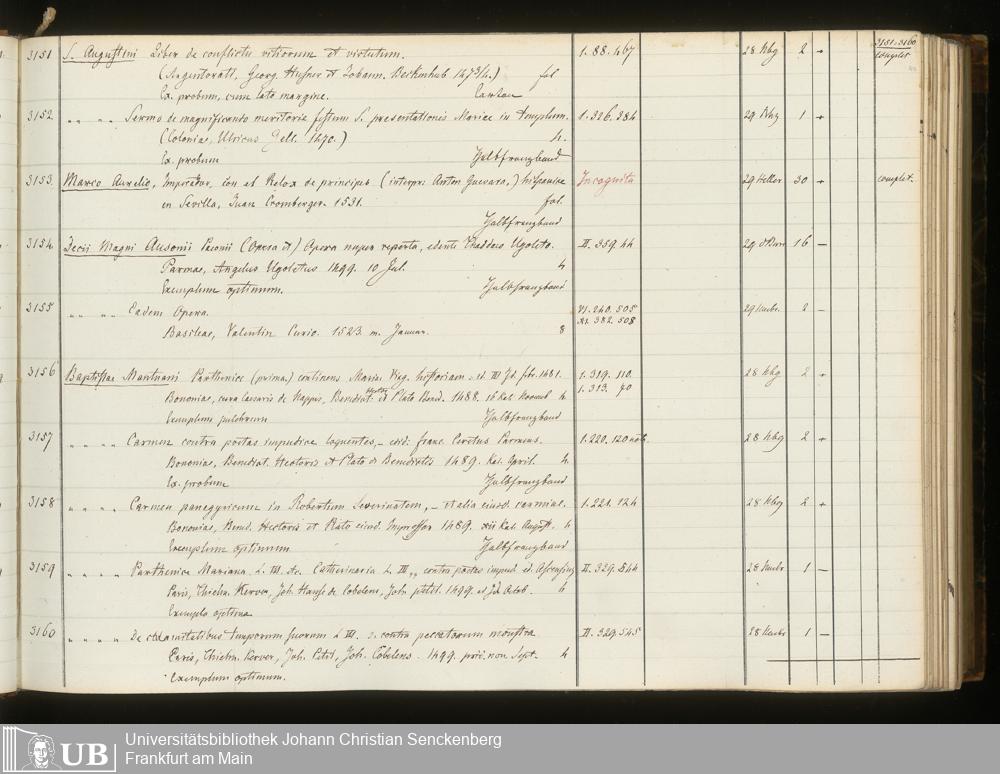 3151-3160
complet
3151 S. Augustini Liber de conflictu vitiorum et virtutum. 1.88.467 28 Kbg 2 +
(Argentorati. Georg. Husner et Johann. Beckenhub 1473/4.) fol
Ex. probum, cum lato margine.
3152 " " " Sermo de magnificando meritorie festum S. presentationis Mariae in templum. 1.326.384 29 1 +
(Coloniae, Ulricus Zell. 1470.) 4.
Ex. probum Halbfranzband
3153. Marco Aurelio, Imperador, con el Relox de principes (interpr: Anton Guevara,) hispanice Incognita 29 Heller 30 + complet.
en Sevilla, Juan Cromberger. 1531. fol.
Halbfranzband
3154 Decii Magni Ausonii Peonii (Opera et) Opera nuper reperta, edente Thaddaeo Ugoleto. II. 359.44 29 16 —
Parmae, Angelus Ugoletus 1499. 10 Jul. 4
Exemplum optimum. Halbfranzband
3155 " " " Eadem Opera. VI. 240. 505 29 2 —
XI. 382. 508
Basileae, Valentin Curio. 1523. m. Januar. 8
3156 Baptistae Mantuani Parthenice (prima.) continens Mariae Virg. historiam. 1481. 1.319. 110. 28 Kbg 2 +
1. 313. 70
Bononiae, cura Caesaris de Nappis, Benedict. Hector et Plato Bened. 1488. 16 Kal. 4.
Exemplum pulchrum Halbfranzband
3157 " " " " Carmen contra poetas impudice loquentes, — edid: franc. Ceretus Parmens. 1.220.120 28 Kbg 2 +
Bononiae, Benedict. Hectoris et Plato de Benedictis 1489. Kal. April. 4.
Ex. probum Halbfranzband
3158 " " " Carmen panegyricum in Robertum Severinatem, — et alia eiusd. carmina. 1.221.124 28 Kbg 2 +
Bononiae, Bened. Hectoris et Plato eiusd. Impressor 1489. xii Kal. August. 4
Exemplum optimum Halbfranzband
3159 " " " " Parthenice Mariana L. III. Catherinaria L. III, contra poetas impud. ed. Ascensius II. 329.544 28 1 —
Paris, Thielm. Kerver, Joh. de Cobelens, Joh. petit. 1499. 6
Exempla optima
3160 " " " " De calamitatibus temporum suorum L III. contra peccatorum monstra II. 329.545 28 1 —
Paris, Thielm. Kerver, Joh. Petit, Joh. Cobelens. 1499. non. Sept. 4
Exemplum optimum.
UB Universitätsbibliothek Johann Christian Senckenberg
Frankfurt am Main